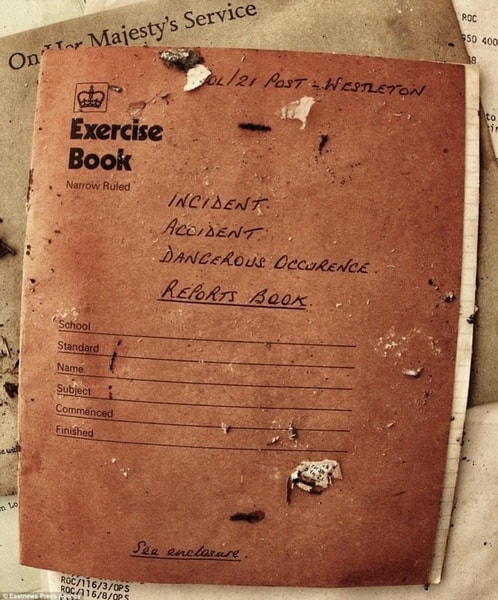 On Her Majesty's Service
ROC
350 400
OL/21 POST - WESTLETON
Exercise
Book
Narrow Ruled
INCIDENT
ACCIDENT
DANGEROUS OCCURENCE
REPORTS BOOK
School
Standard
Name
Subject
Commenced
Finished
See enclosure.
ROC/116/3/OPS
ROC/116/8/OPS
© Eastnews Press